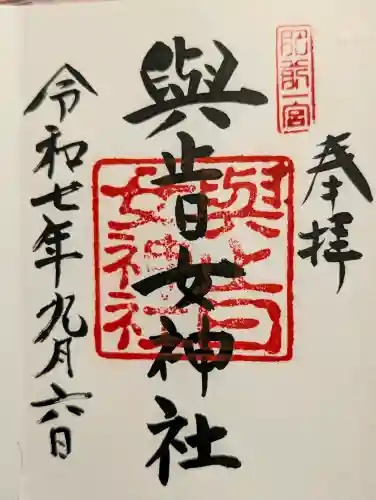 肥前一宮
奉拝
與止日女神社
與止日女神社
令和七年九月六日